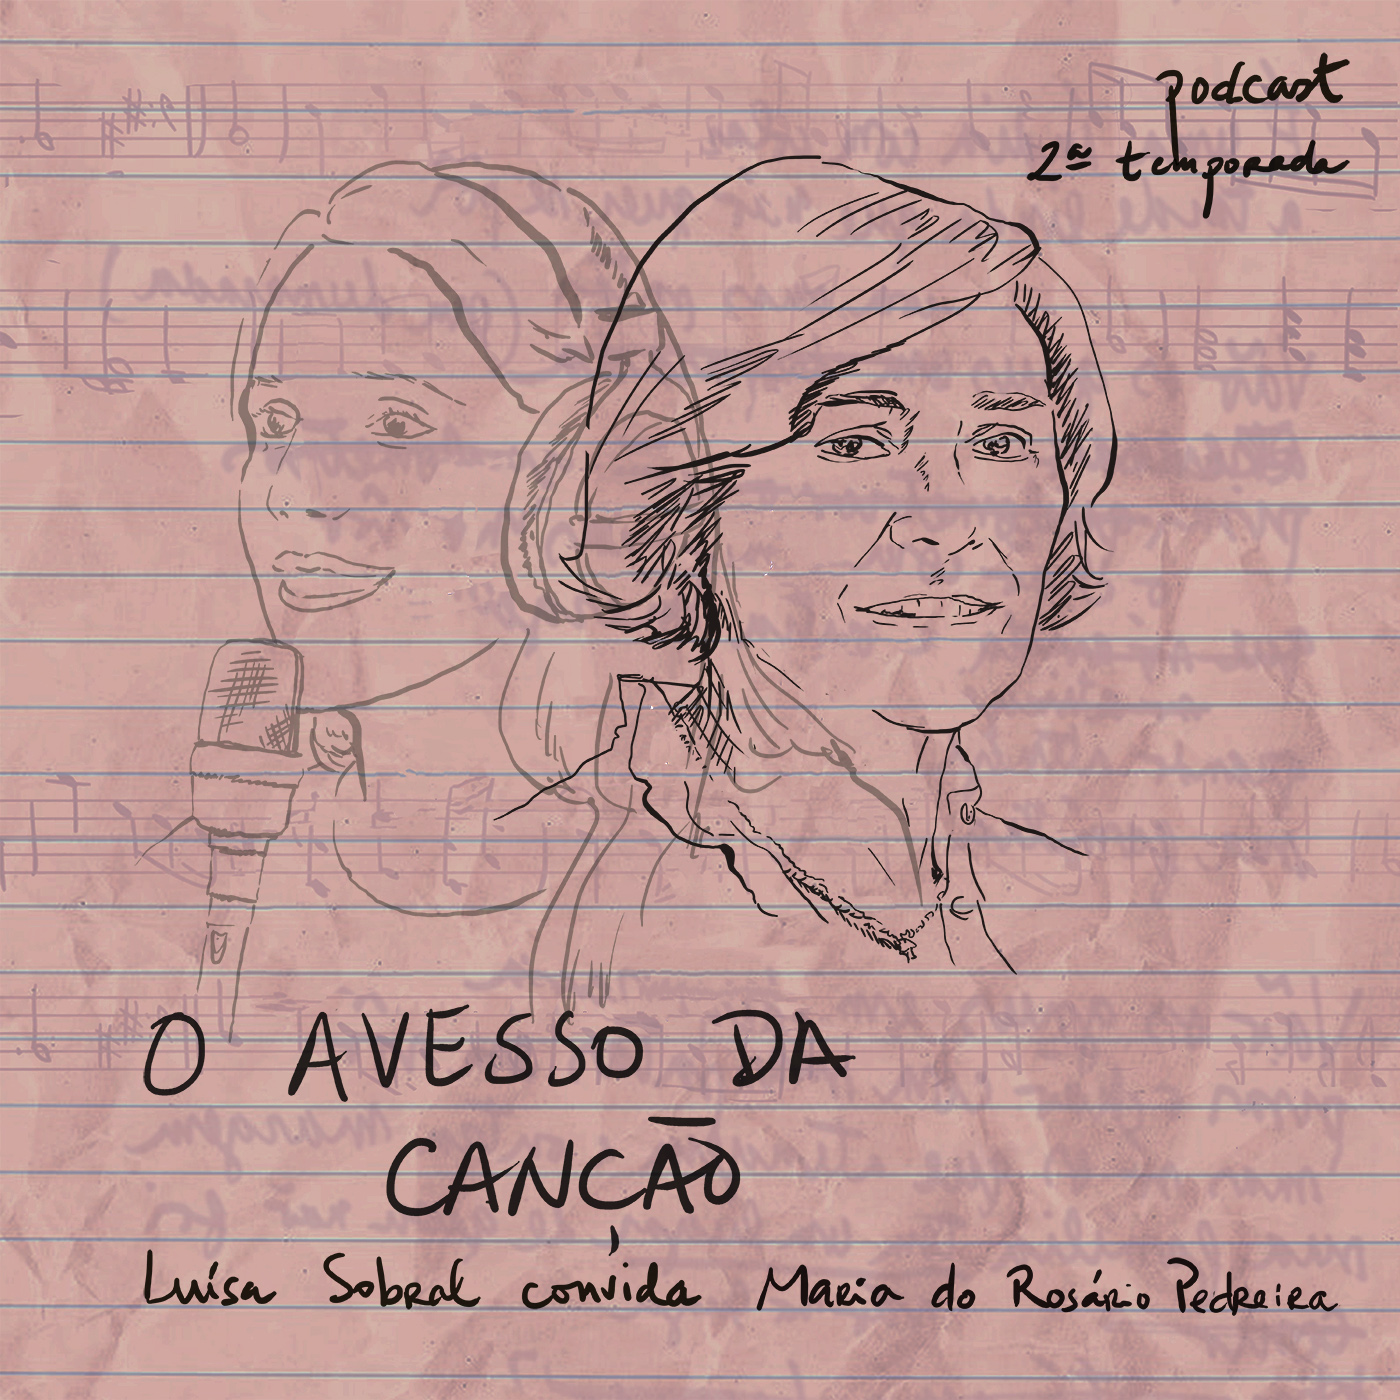 podcast
2ª temporada
O AVESSO DA
CANÇÃO
Luísa Sobral convida Maria do Rosário Pedreira